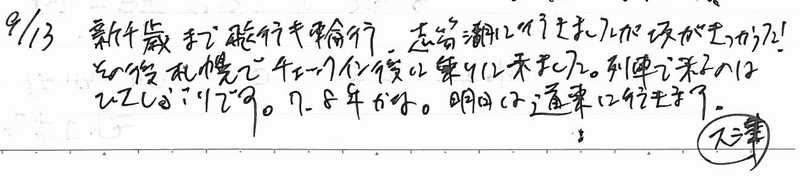 9/13 新千歳まで飛行キ輪行、志苔湖に行きましたが坂がきつかった!
その後札幌でチェックイン後に乗りに来ました。列車で来るのは
ひさしぶりです。7、8年かな。明日は道東に行きます。